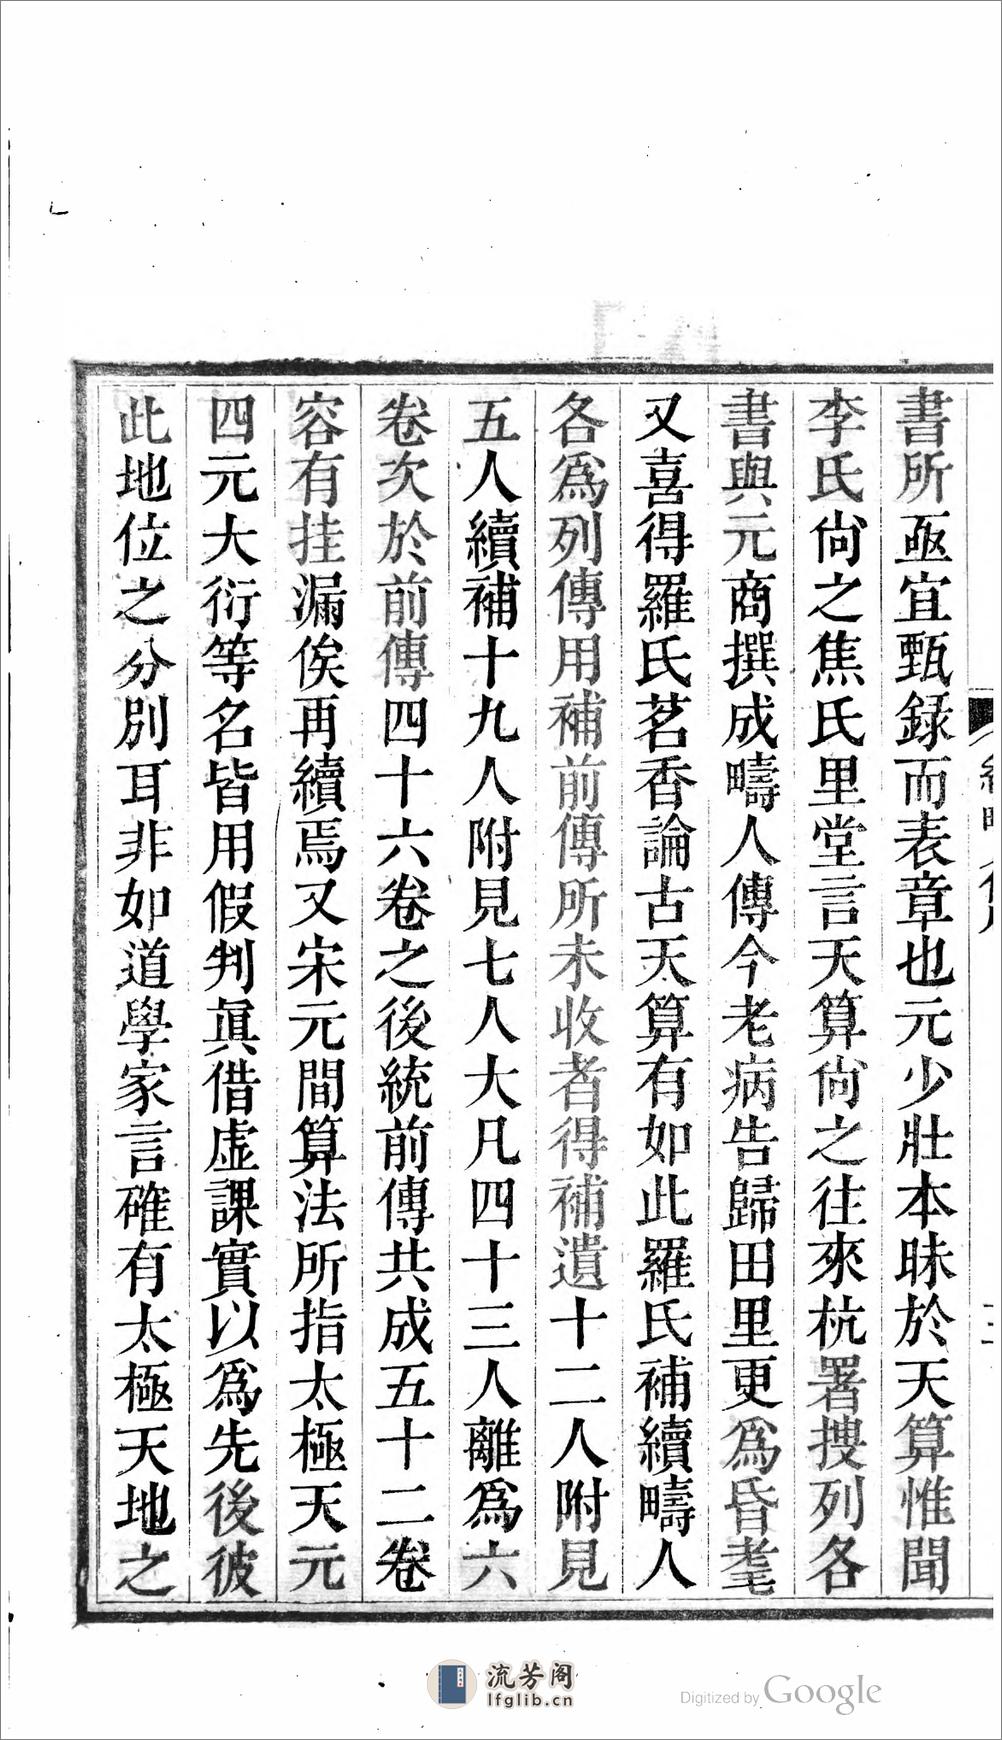 書所亟宜甄録而表章也元少壯本昧於天算惟聞
李氏尙之焦氏里堂言天算尙之往來杭署搜列各
書與元商撰成疇人傳今老病告歸田里更爲昏耄
又喜得羅氏茗香論古天算有如此羅氏補續疇人
各爲列傳用補前傳所未收者得補遺十二人附見
五人續補十九人附見七人大凡四十三人離爲六
卷次於前傳四十六卷之後統前傳共成五十二卷
容有挂漏俟再續焉又宋元間算法所指太極天元
四元大衍等名皆用假判眞借虚課實以爲先後彼
此地位之分別耳非如道學家言確有太極天地之
流芳阁
lfglib.cn
Digitized by Google